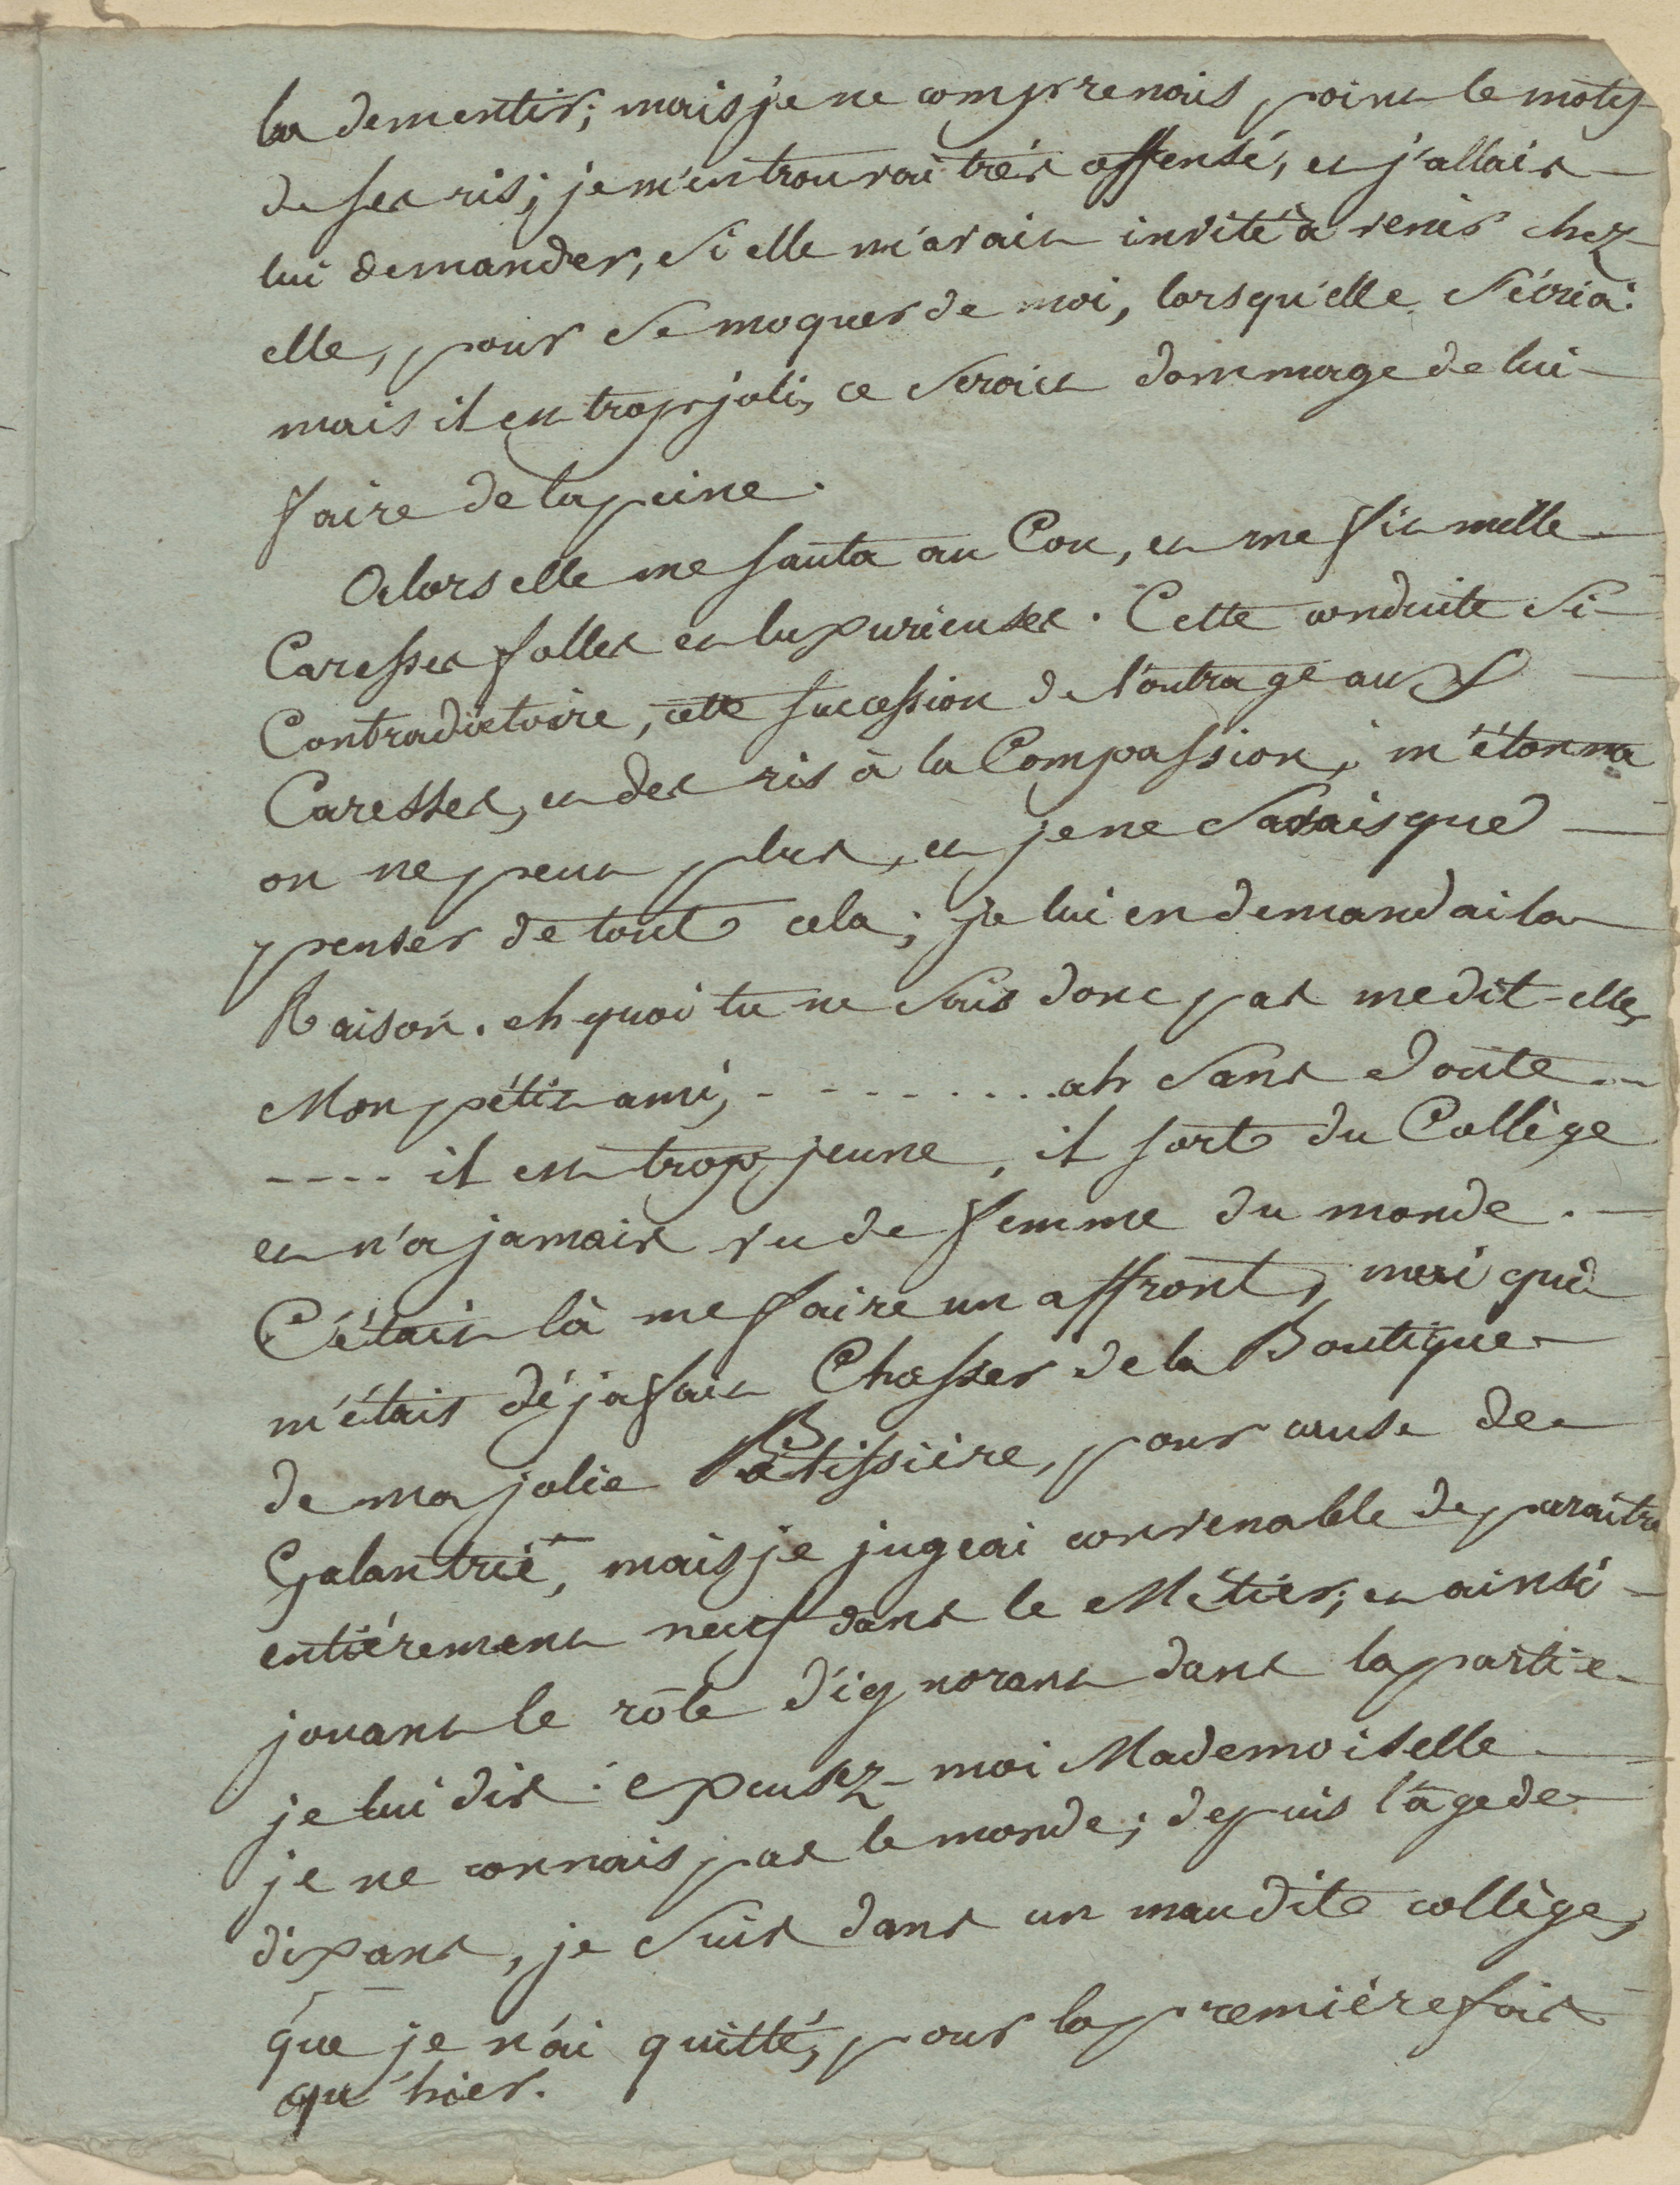 la dementir; mais je ne comprenois point le motif
de ses ris; je m'en trouvai très offensé, et j'allais
lui demander, si elle m'avait invité à venir chez
elle, pour se moquer de moi, lorsqu'elle s'écria:
mais il est trop joli, ce seroit dommage de lui
faire de la peine.
Alors elle me sauta au Cou, et me fit mille
Caresses folles et luxurieuses. Cette conduite si
Contradictoire, cette succession de l'outrage aux
Caresses, et des ris à la Compassion, m'étonna
on ne peut plus, et je ne savais que
penser de tout cela; je lui en demandai la
Raison. eh quoi tu ne sais donc pas me dit-elle,
Mon pétit ami, - - - - - . . . ah sans doute . -
- - - - il est trop jeune, il sort du Collège
et n'a jamais vu de femme du monde. -
C'était là me faire un affront, moi qui
m'étais déja fait Chasser de la Boutique
de ma jolie Pâtissière, pour cause de
Galantrie, mais je jugeai convenable de paraitre
entiérement neuf dans le Métier; et ainsi
jouant le rôle d'ignorant dans la partie
je lui dis: excusez-moi Mademoiselle
je ne connais pas le monde; depuis l'âge de
dix ans, je suis dans un maudite collège,
que je n'ai quitté, pour la première fois
qu'hier.